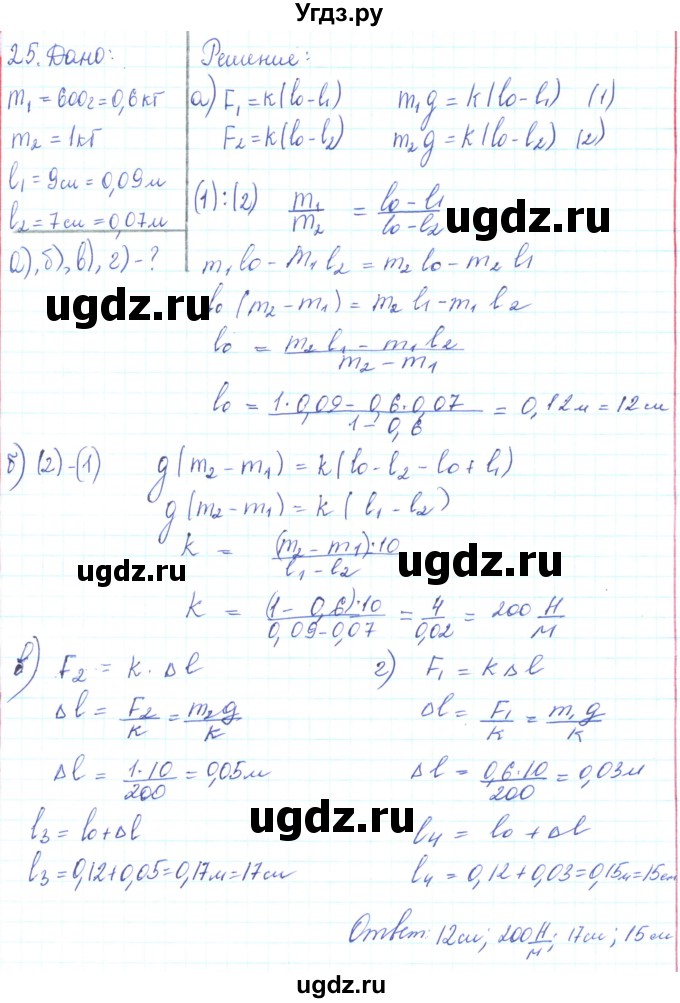 Угдз.ру
25. Дано:
m₁ = 600г = 0,6 кг
m₂ = 1 кг
l₁ = 9 см = 0,09 м
l₂ = 7 см = 0,07 м
а), б), в), г) - ?
Решение:
а) F₁ = k(l₀ - l₁) m₁g = k(l₀ - l₁) (1)
F₂ = k(l₀ - l₂) m₂g = k(l₀ - l₂) (2)
(1):(2) m₁/m₂ = (l₀ - l₁)/(l₀ - l₂)
m₁l₀ - m₁l₂ = m₂l₀ - m₂l₁
ugdz.ru
ugdz.ru
l₀(m₂ - m₁) = m₂l₁ - m₁l₂
l₀ = (m₂l₁ - m₁l₂)/(m₂ - m₁)
l₀ = (1·0,09 - 0,6·0,07)/(1 - 0,6) = 0,12 м = 12 см
б) (2)-(1) g(m₂ - m₁) = k(l₀ - l₂ - l₀ + l₁)
g(m₂ - m₁) = k(l₁ - l₂)
k = (m₂ - m₁)·10/(l₁ - l₂)
ugdz.ru
ugdz.ru
k = (1 - 0,6)·10/(0,09 - 0,07) = 4/0,02 = 200 Н/м
в) F₂ = k·Δl г) F₁ = kΔl
Δl = F₂/k = m₂g/k Δl = F₁/k = m₁g/k
Δl = 1·10/200 = 0,05 м Δl = 0,6·10/200 = 0,03 м
ugdz.ru
ugdz.ru
l₃ = l₀ + Δl l₄ = l₀ + Δl
l₃ = 0,12 + 0,05 = 0,17 м = 17 см l₄ = 0,12 + 0,03 = 0,15 м = 15 см
Ответ: 12 см; 200 Н/м; 17 см; 15 см
ugdz.ru